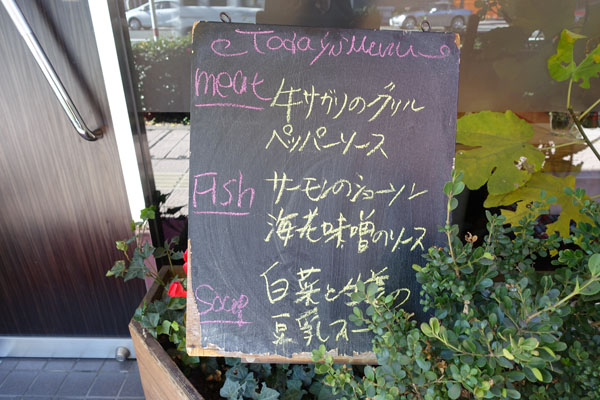 Today's Menu
meat
牛サガリのグリル
ペッパーソース
Fish
サーモンのジョーソン
海老味噌のソース
Soup
白菜と生姜の
豆乳スー